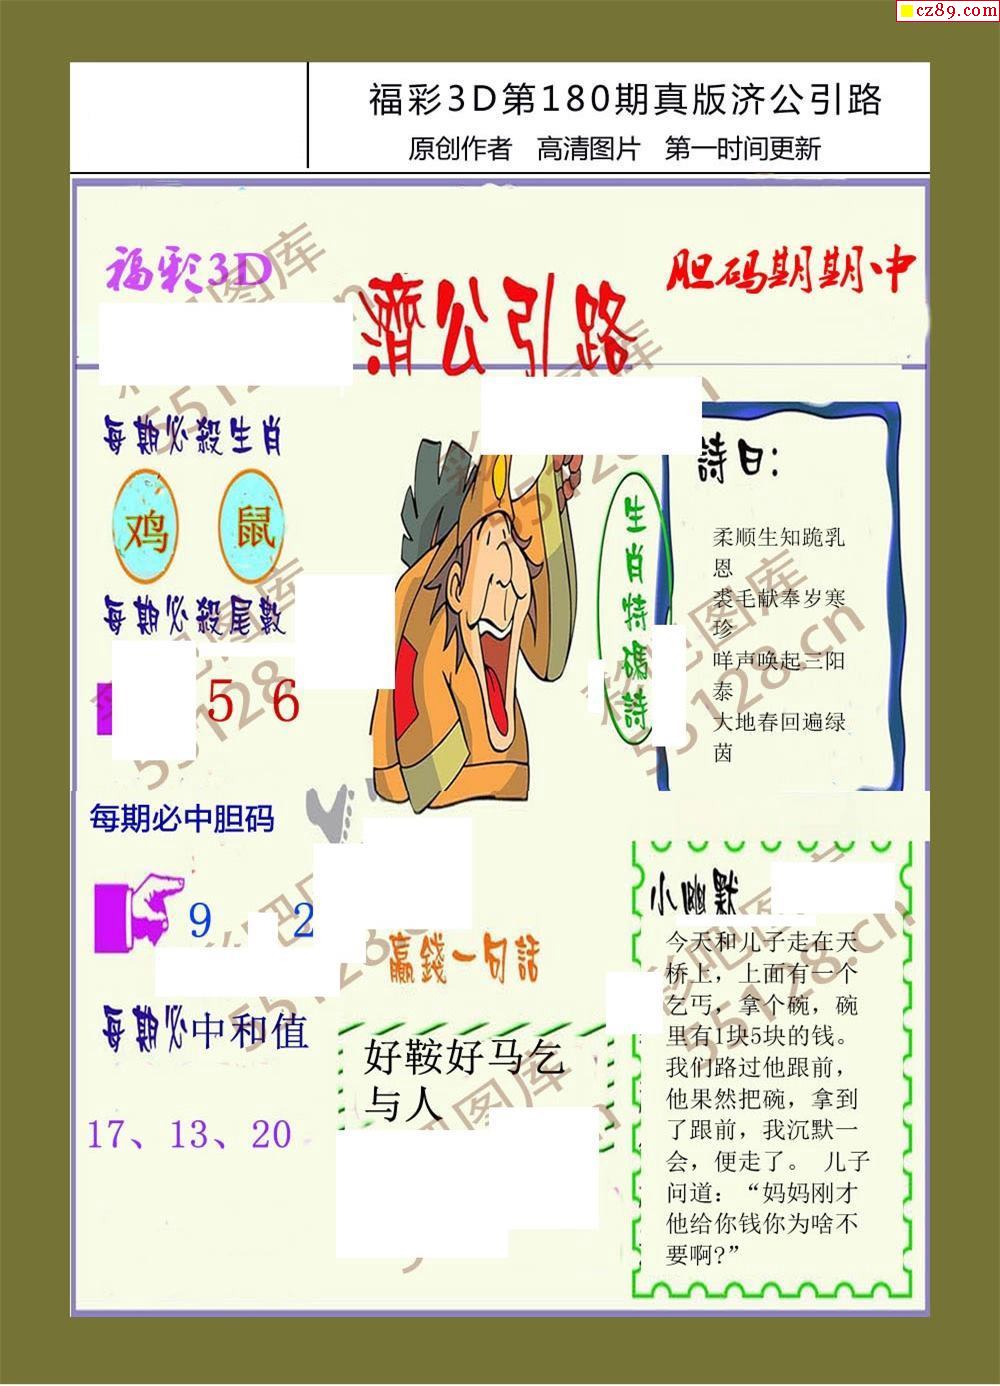 cz89.com
福彩3D第180期真版济公引路
原创作者 高清图片 第一时间更新
福彩3D
濟公引路
胆码期期中
每期必殺生肖
鸡 鼠
每期必殺尾數
5 6
每期必中胆码
9 2
每期必中和值
17、13、20
生肖特碼詩
詩曰：
柔顺生知跪乳
恩
裘毛献奉岁寒
珍
咩声唤起三阳
泰
大地春回遍绿
茵
贏錢一句話
好鞍好马乞
与人
小幽默
今天和儿子走在天
桥上，上面有一个
乞丐，拿个碗，碗
里有1块5块的钱。
我们路过他跟前，
他果然把碗，拿到
了跟前，我沉默一
会，便走了。 儿子
问道：“妈妈刚才
他给你钱你为啥不
要啊?”
彩吧图库
55128.cn